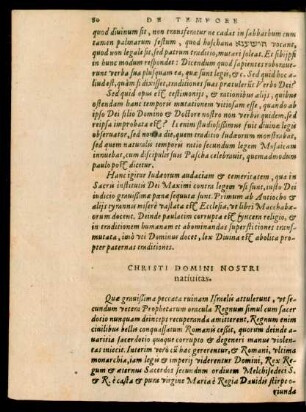 80 DE TEMPORE
quod diuinum sit, non transferetur ne cadat in sabbathum cum
tamen palmarum festum, quod hoschana הושענא vocant,
quod non legale sit, sed patrum traditio, mutari soleat. Et sibijpsi
in hunc modum responder: Dicendum quod sapientes roborauerunt
verba sua plusquam ea, quæ sunt legis, &c. Sed quid hoc aliud
est, quàm si dixisset, traditiones suas prætulerūt Verbo Dei?
Sed quid opus est testimonijs, & rationibus alijs, quibus
ostendam hanc temporis mutationem vitiosam esse, quando ab
ipso Dei filio Domino & Doctore nostro non verbis quidem, sed
reipsa improbata est? Is enim studiosissimus fuit diuinæ legis
obseruator, sed
die, quem traditio Iudæorum monstrabat,
sed quem naturalis temporis ratio secundum legem Mosaicam
innuebat, cum discipulis suis Pascha celebrauit, quemadmodum
paulo post dicetur.
Hanc igitur Iudæorum audaciam & temeritatem, qua in
Sacri instituti Dei Maximi contra legem vsi sunt, iusto Dei
iudicio grauissimæ pœnæ sequuta sunt. Primum ab Antiocho &
alijs tyrannis miserè vastata est Ecclesia, vt libri Macchabæorum
docent. Deinde paulatim corrupta est syncera religio, &
in traditionem humanam et abominandas superstitiones transmutata,
imò vti Dominus docet, lex Diuina est abolita propter
paternas traditiones.
CHRISTI DOMINI NOSTRI
natiuitas.
Quæ grauissima peccata ruinam Israelis attulerunt, vt secundum
vetera Prophetarum oracula Regnum simul cum sacerdotio
nunquam deinceps recuperanda amitterent. Regnum enim
ciuilibus bellis conquassatum Romanis cessit, quorum deinde auaritia
sacerdotio quoque corrupto & degeneri manus violentas
iniecit. Interim verò cū hæc gererentur, & Romani, vltima
monarchia, iam legem & vitam dominarentur, Domini, Rex Regum
& æternus Sacerdos secundum ordinem Melchisedeci S.
& R. è casta & pura virgine Maria è Regia Dauidis stirpe
oriunda